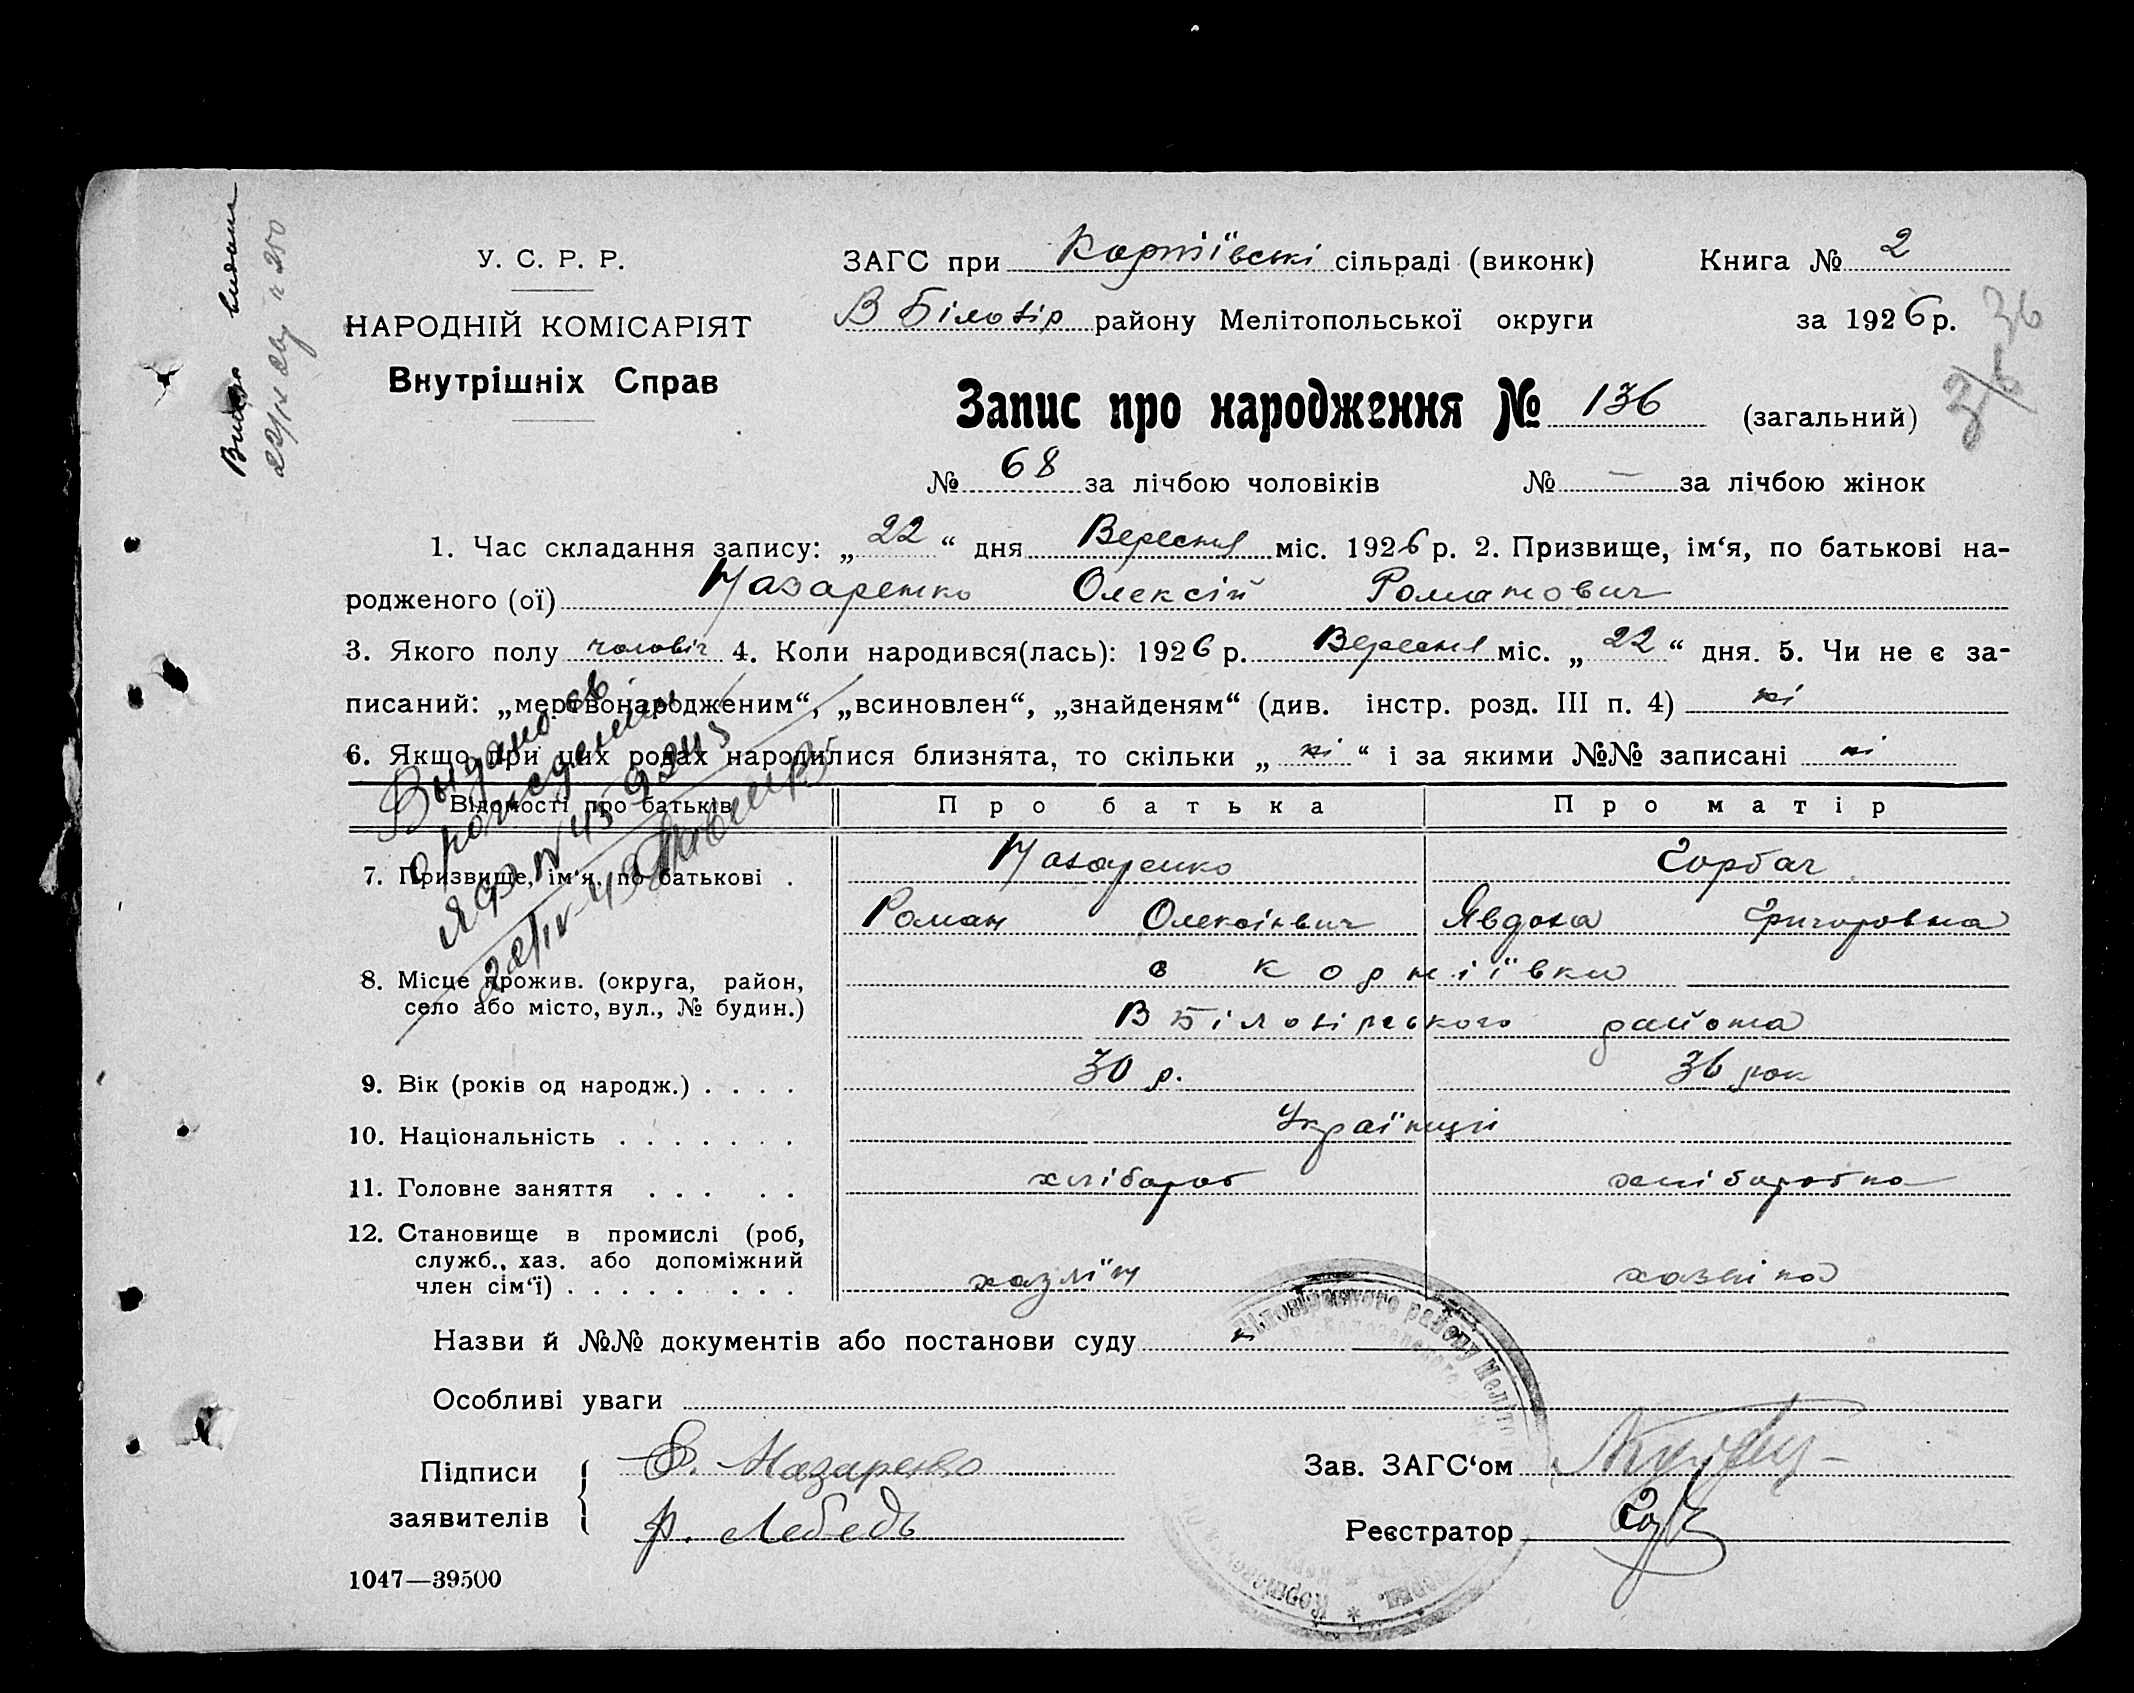 У. С. Р. Р.
НАРОДНІЙ КОМІСАРІЯТ
Внутрішніх Справ
ЗАГС при Корніївські сільраді (виконк)
Книга № 2
В Білозір району Мелітопольської округи
за 1926 р.
36
36
Запис про народження № 136 (загальний)
№ 68 за лічбою чоловіків № — за лічбою жінок
1. Час складання запису: „22“ дня Вересня міс. 1926 р. 2. Призвище, ім‘я, по батькові на-
родженого (ої) Назаренко Олексій Романович
3. Якого полу чоловіч 4. Коли народився(лась): 1926 р. Вересня міс. „22“ дня. 5. Чи не є за-
писаний: „мертвонародженим“, „всиновлен“, „знайденям“ (див. інстр. розд. III п. 4) ні
6. Якщо при цих родах народилися близнята, то скільки „ні“ і за якими №№ записані ні
Выдано св
о рождении
Відомості про батьків
Про батька
Про матір
7. Призвище, ім‘я, по батькові .
Назаренко
Горбач
Роман Олексієвич
Явдоха Григоровна
8. Місце прожив. (округа, район,
село або місто, вул., № будин.)
с Корніївки
В Білозірського района
9. Вік (років од народж.) . . . .
30 р.
36 рок
10. Національність . . . . . . .
Українці
11. Головне заняття . . . . .
хлібороб
хліборобка
12. Становище в промислі (роб,
служб., хаз. або допоміжний
член сім‘ї) . . . . . . . .
хазяїн
хазяіка
Назви й №№ документів або постанови суду
Особливі уваги
Підписи
заявителів
Назаренко
Р. Лебедь
Зав. ЗАГС‘ом
Реєстратор
1047—39500